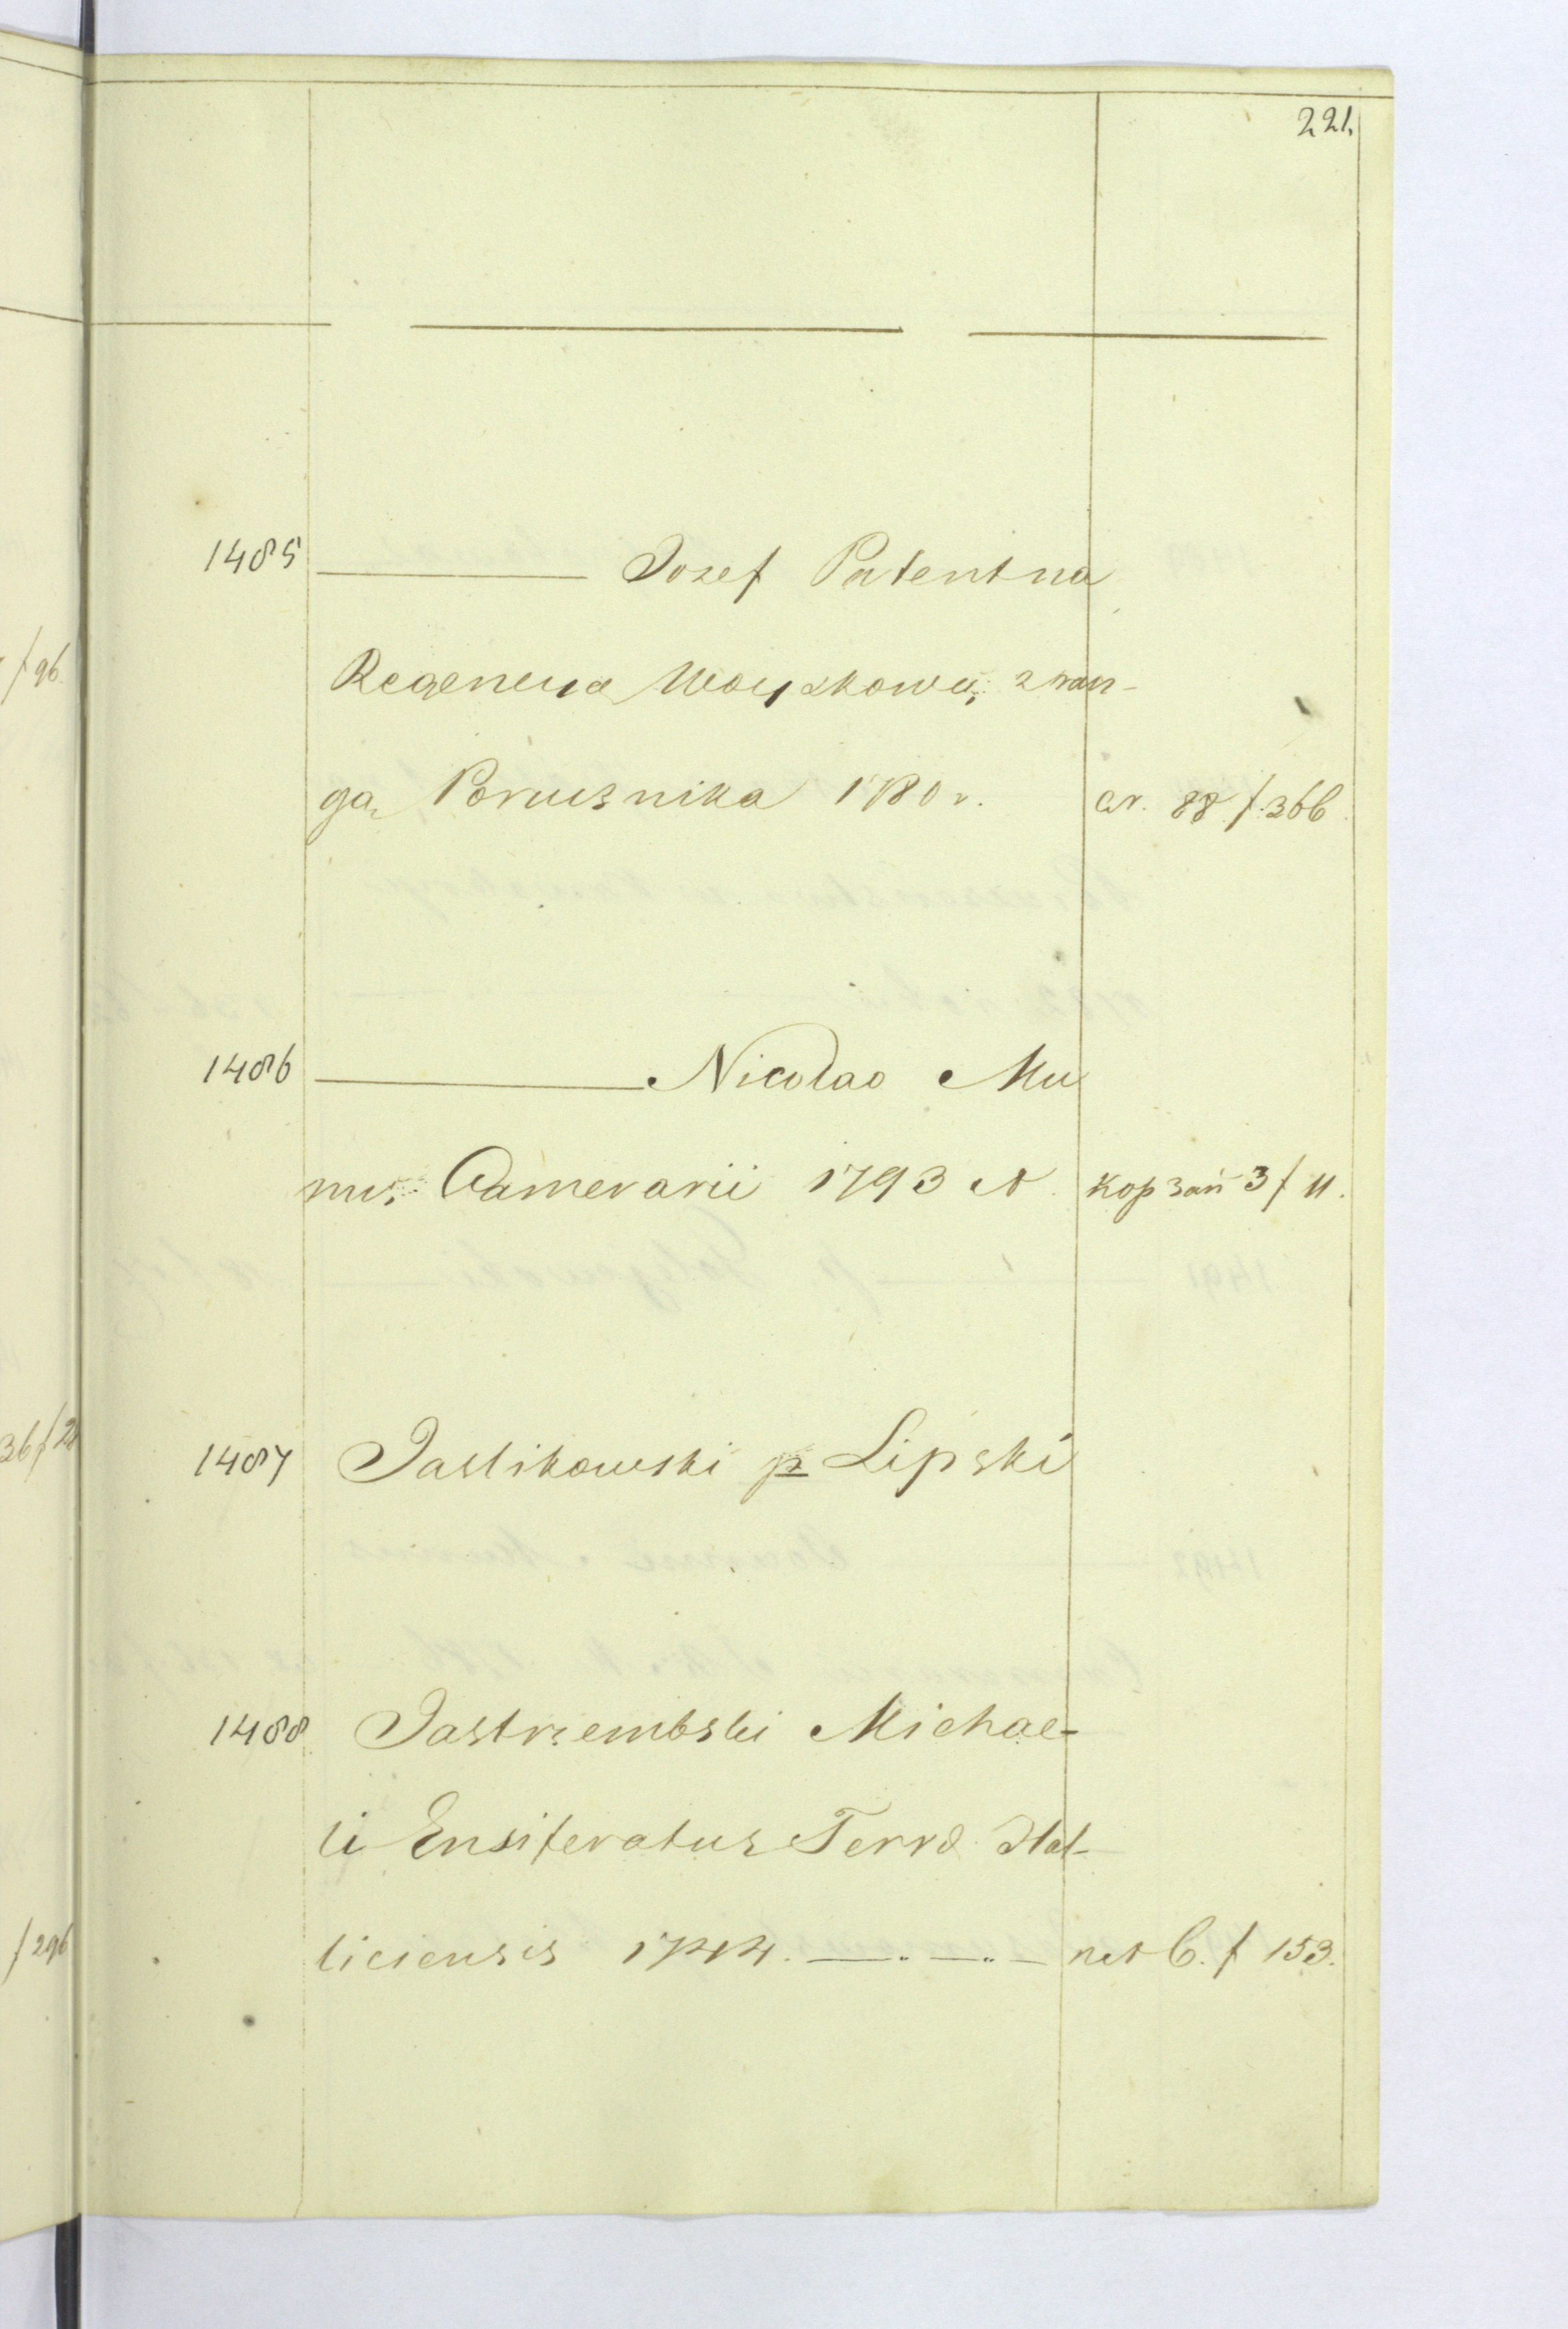 221.
1485 ——— Josef Patent na
Regencya Woyskową z ran-
gą Porusznika 1780 r. ar. 88 f. 366
1486 ——— Nicolao Mu
nus Camerarii 1793 A. кор зап 3 f 11.
1487 Jaslikowski p Lipski
1488 Jastrzembski Michae-
li Ensiferatus Terrę Hal-
liciensis 1744. —.—..— net C. f 153.
/96
36 f 2
/296